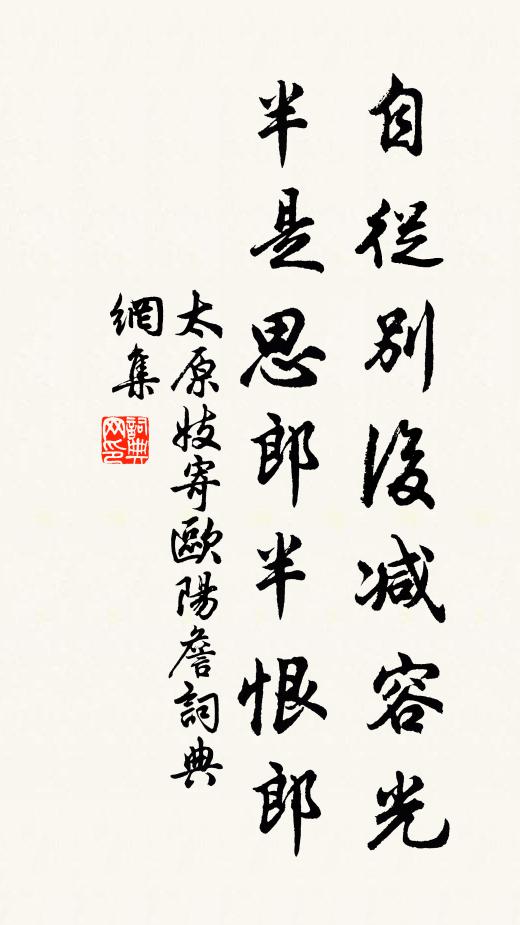 自從別後減容光
半是思郎半恨郎
太原妓寄歐陽詹詞典
網集
詞典網印